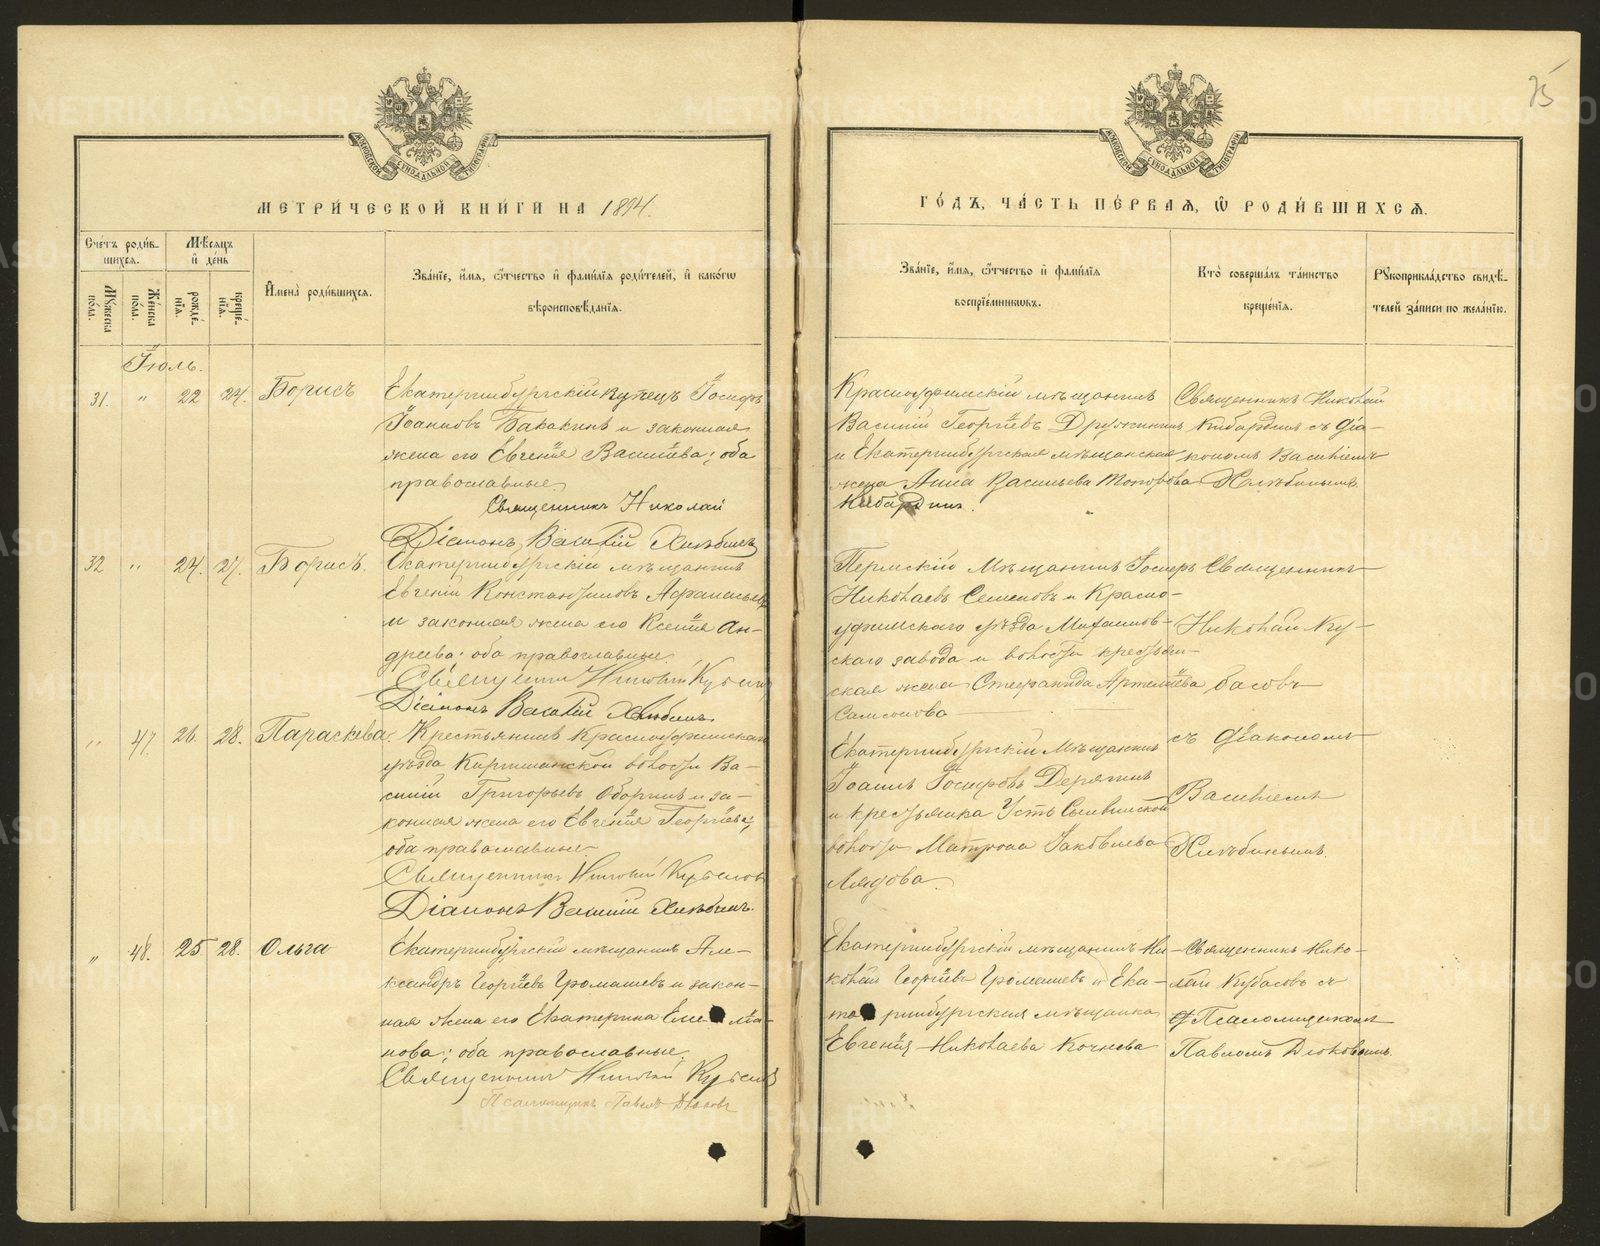 75
МЕТРИ́ЧЕСКОЙ КНИ́ГИ НА 1894.
ГО́ДЪ, ЧА́СТЬ ПЕ́РВАЯ, Ѡ РОДИ́ВШИХСЯ.
Сче́тъ роди́в-
шихся.
Мѣ́сяцъ
и́ де́нь
Му́жеска
по́ла.
Же́нска
по́ла.
рожде́-
нїя.
креще́-
нїя.
И́мена̀ роди́вшихся.
Зва́нїе, и́мя, ѻ́тчество и́ фами́лїя роди́телей, и́ како́гѡ
вѣроисповѣ́данїя.
Зва́нїе, и́мя, ѻ́тчество и́ фами́лїя
воспрїе́мниковъ.
Кто̀ соверша́лъ та́инство
креще́нїя.
Рꙋкоприкла́дство свидѣ́-
телей за́писи по жела́нїю.
Іюль.
31. " 22 24. Борисъ
Екатеринбургскій купецъ Іосифъ
Іоанновъ Бабакинъ и законная
жена его Евгенія Васильева; оба
православные.
Священникъ Николай
Кибардин.
Діаконъ Василій Хлѣбинъ
Красноуфимскій мѣщанинъ
Василій Георгіевъ Дружининъ
и Екатеринбургская мѣщанская
жена Анна Васильева Топорова
Священникъ Николай
Кибардинъ съ діа-
кономъ Василіемъ
Хлѣбинымъ
32 " 24. 27. Борисъ.
Екатеринбургскій мѣщанинъ
Евгеній Константиновъ Афанасьевъ
и законная жена его Ксенія Ан-
дреева; оба православные.
Священникъ Николай Кубасовъ
Діаконъ Василій Хлѣбинъ.
Пермскій мѣщанинъ Іосифъ
Николаевъ Семеновъ и Красно-
уфимскаго уѣзда Михайлов-
скаго завода и волости крестьян-
ская жена Стефанида Артеміева
Самсонова
Священникъ
Николай Ку-
басовъ
" 47. 26. 28. Параскева.
Крестьянинъ Красноуфимскаго
уѣзда Киргишанской волости Ва-
силій Григорьевъ Оборинъ и за-
конная жена его Евгенія Георгіева;
оба православные.
Священникъ Николай Кубасовъ
Діаконъ Василій Хлѣбинъ.
Екатеринбургскій мѣщанинъ
Іоаннъ Іосифовъ Дерягинъ
и крестьянка Усть Сылвинской
волости Матрона Іаковлева
Лядова.
съ діакономъ
Василіемъ
Хлѣбинымъ.
" 48. 25 28. Ольга
Екатеринбургскій мѣщанинъ Але-
ксандръ Георгіевъ Громашевъ и закон-
ная жена его Екатерина
нова; оба православные.
Священникъ Николай Кубасовъ
Псаломщикъ Павелъ
Екатеринбургскій мѣщанинъ Ни-
колай Георгіевъ Громашевъ и Ека-
теринбургская мѣщанка
Евгенія Николаева Кочнева
Священникъ Нико-
лай Кубасовъ съ
Псаломщикомъ
Павломъ